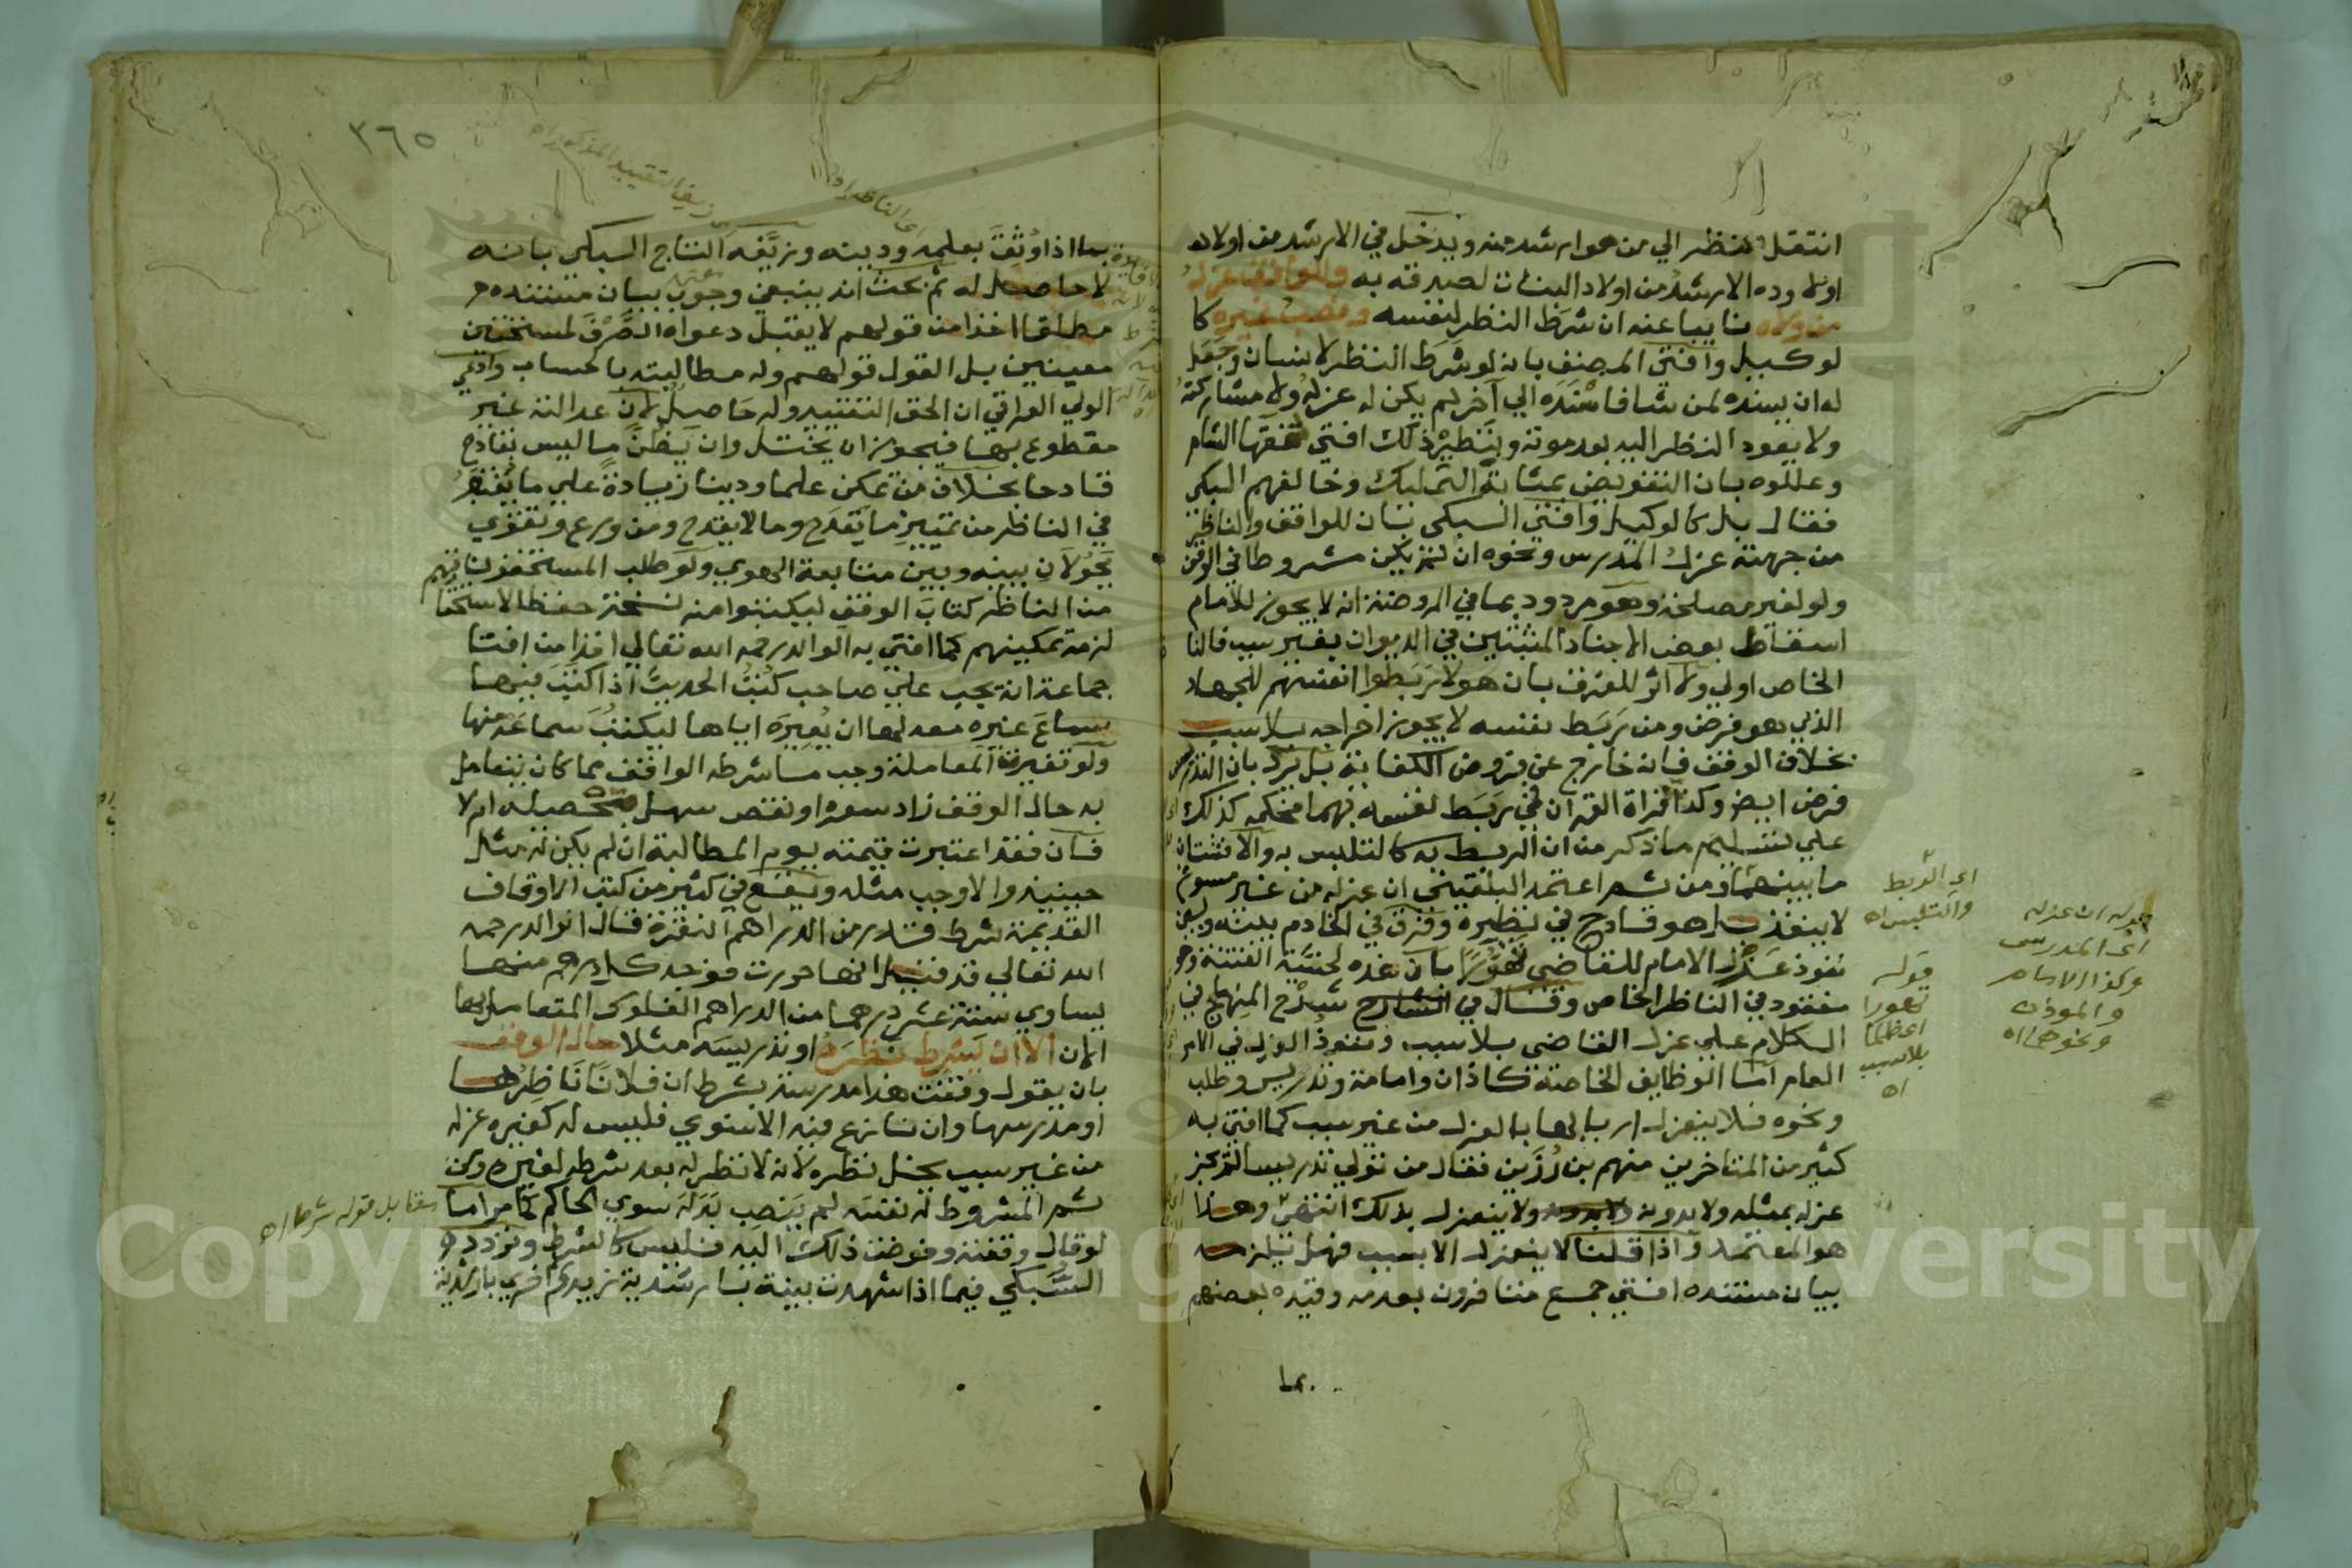 انتقل النظر الي من هو ارشد منه ويدخل في الارشد من اولاد
اولاده الارشد من اولاد البنات لصدقه به وللواقف عزل
من ولاه نايبا عنه ان شرط النظر لنفسه ونصب غيره كا
لوكيل وافتي المصنف بانه لو شرط النظر لانسان وجعل
له ان يسنده لمن شا فاسنده الي آخر لم يكن له عزله ولا مشاركته
ولا يعود النظر اليه بعد موته وبنظير ذلك افتي فقها الشام
وعللوه بان التفويض بمثابة التمليك وخالفهم السبكي
فقال بل كالوكيل وافتي السبكي بان للواقف والناظر
من جهته عزل المدرس ونحوه ان لم يكن مشروطا في الوقف
ولو لغير مصلحة وهو مردود بما في الروضة انه لا يجوز للامام
اسقاط بعض الاجناد المثبتين في الديوان بغير سبب فالنا
الخاص اولي ولا اثر للفرق بان هولا ربطوا انفسهم للجهاد
الذي هو فرض ومن ربط نفسه لا يجوز اخراجه بلا سبب
بخلاف الوقف فانه خارج عن فروض الكفاية بل يرد بان التدريس
فرض ايضا وكذا قراة القران فمن ربط نفسه بهما فحكمه كذلك
علي تسليم ما ذكر من ان الربط به كالتلبس به والا فشتان
ما بينهما ومن ثم اعتمد البلقيني ان عزله من غير مسوغ
لا ينفذ بل هو قادح في نظره وفرق في الخادم بينه وبين
نفوذ عزل الامام للقاضي تهورا بان هذه لخشية الفتنة وهو
مفقود في الناظر الخاص وقال في شرح المنهاج في
الكلام علي عزل القاضي بلا سبب ونفوذ العزل في الامر
العام اما الوظايف الخاصة كاذان وامامة وتدريس وطلب
ونحوه فلا ينعزل اربابها بالعزل من غير سبب كما افتي به
كثير من المتاخرين منهم بن رزين فقال من تولي تدريسا لم يجز
عزله بمثله ولا بدونه ولا ينعزل بذلك انتهى وهذا
هو المعتمد واذا قلنا لا ينعزل الا بسبب فهل يلزمه
بيان مستنده افتي جمع متاخرون بعدمه وقيده بعضهم
بما
اي الربط
والتلبس اه
قوله ان عزله
اي المدرس
وكذا الامام
والموذن
ونحوهما اه
قوله
تهورا
بلا سبب
اه
٣٦٥
اي الناظر اه
بما اذا وثق بعلمه ودينه وزيفه التاج السبكي بانه
لا حاصل له ثم بحث انه ينبغي وجوب بيان مستنده
مطلقا اخذا من قولهم لا يقبل دعواه الصرف لمستحقين
معينين بل القول قولهم وله مطالبته بالحساب وادعي
الولي العراقي ان الحق التقييد وله حاصل لان عدالته غير
مقطوع بها فيجوز ان يختل وان يظن ما ليس بقادح
قادحا بخلاف من تمكن علما ودينا زيادة علي ما يعتبر
في الناظر من تمييز ما يقدح وما لا يقدح ومن ورع وتقوي
يحولان بينه وبين متابعة الهوي ولو طلب المستحقون
من الناظر كتاب الوقف ليكتبوا منه نسخة حفظا لاستحقا
لزمه تمكينهم كما افتي به الوالد رحمه الله تعالي اخذا من افتا
جماعة انه يجب علي صاحب كتب الحديث اذا كتب فيها
سماع غيره معه لها ان يعيره اياها ليكتب سماعه منها
ولو تغيرت المعاملة وجب ما شرطه الواقف مما كان يتعامل
به حال الوقف زاد سعره او نقص سهل تحصيله ام لا
فان فقد اعتبرت قيمته يوم المطالبة ان لم يكن له مثل
حينيذ والا وجب مثله ويقع في كثير من كتب الاوقاف
القديمة شرط قدر من الدراهم النقرة قال الوالد رحمه
الله تعالي قد قيل انها حررت فوجد كل درهم منها
يساوي ستة عشر درهما من الدراهم الفلوس المتعامل بها
الان الا ان يشرط نظره او تدريسه مثلا حال الوقف
بان يقول وقفت هذا مدرسة بشرط ان فلانا ناظرها
او مدرسها وان نازع فيه الاسنوي فليس له كغيره عزله
من غير سبب يخل بنظره لانه لا نظر له بعد شرطه لغيره ومن
ثم لو عزل المشروط له نفسه لم ينصب بدله سوي الحاكم كما مر اما
لو قال وقفته وفوضت ذلك اليه فليس كالشرط وتردد
السبكي فيما اذا شهدت بينة بارشدية زيد ثم اخري بارشدية
مقابل قوله شرط اه
Copyright © King Saud University